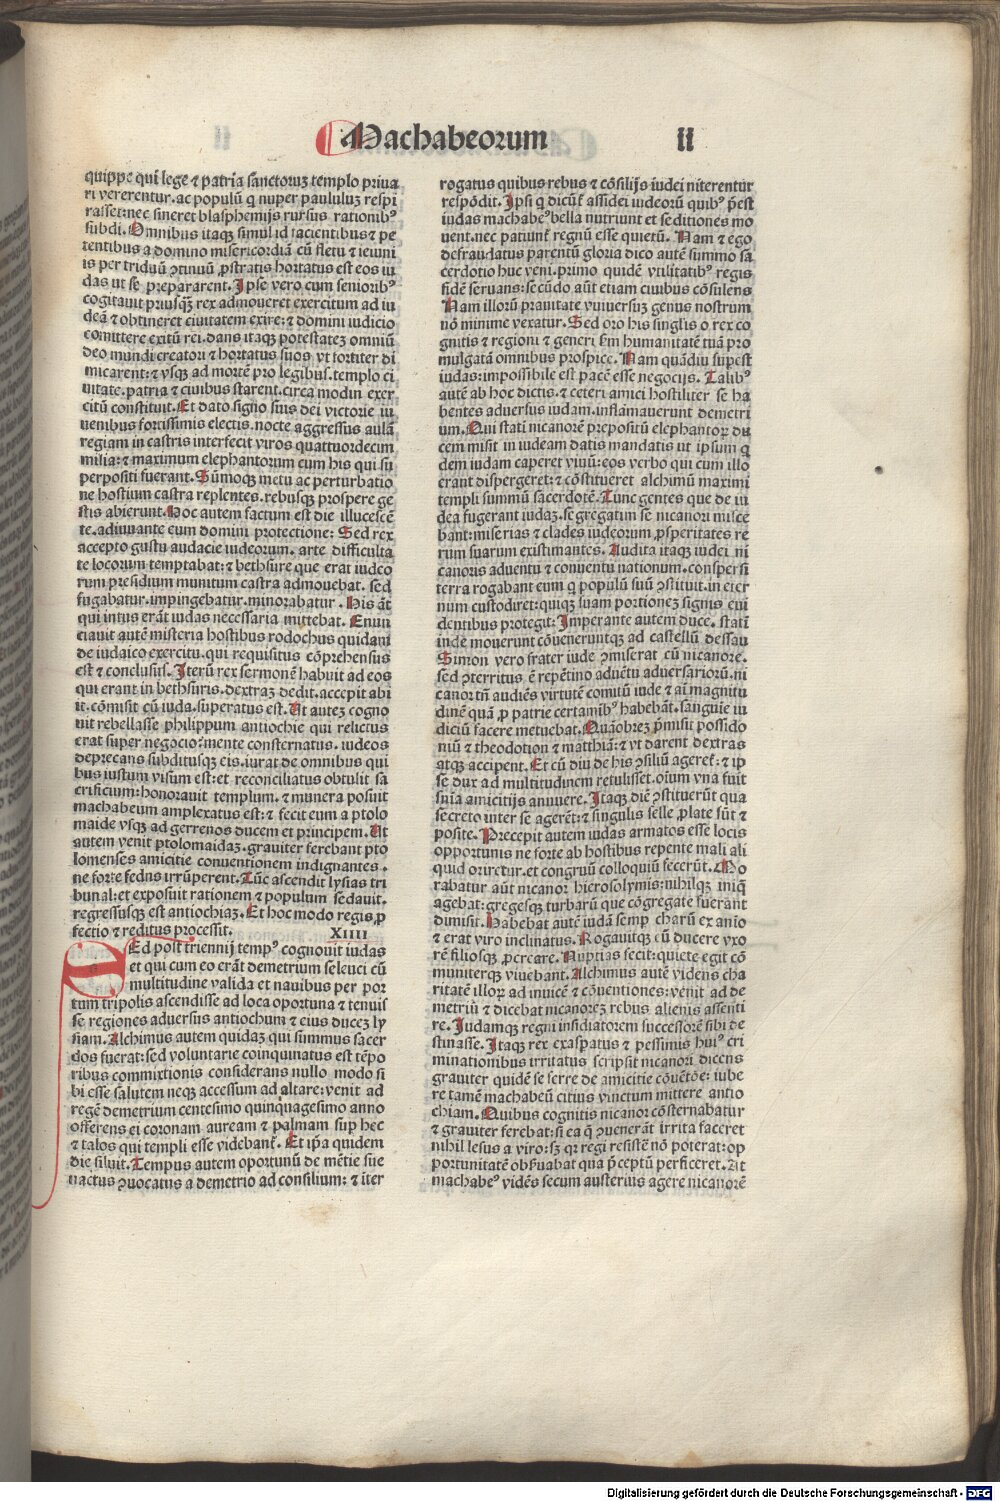 Machabeorum II
quippe qui lege ⁊ patria sanctoruꝫ templo priua
ri vererentur. ac populū q̄ nuper paululuꝫ respi
rasset: nec sineret blasphemijs rursus rationibꝰ
subdi. Omnibus itaqꝫ simul id facientibus ⁊ pe
tentibus a domino misericordiā cū fletu ⁊ ieiuni
is per triduū ꝯtinuū ꝓstratis hortatus est eos iu
das vt se prepararent. Ipse vero cum senioribꝰ
cogitauit priusqꝫ rex admoueret exercitum ad iu
deā ⁊ obtineret ciuitatem exire: ⁊ domini iudicio
cōmittere exitū rei. dans itaqꝫ potestateꝫ omniū
deo mundi creatori ⁊ hortatus suos vt fortiter di
micarent: ⁊ vsqꝫ ad mortē pro legibus. templo ci
uitate. patria ⁊ ciuibus starent. circa modin exer
citū constituit. Et dato signo suis dei victorie iu
uenibus fortissimis electis. nocte aggressus aulā
regiam in castris interfecit viros quattuordecim
milia: ⁊ maximum elephantorum cum his qui su
perpositi fuerant. Sūmoqꝫ metu ac perturbatio
ne hostium castra replentes. rebusqꝫ prospere ge
stis abierunt. Hoc autem factum est die illucescē
te. adiuuante eum domini protectione: Sed rex
accepto gustu audacie iudeorum. arte difficulta
te locorum temptabat: ⁊ bethsure que erat iudeo
rum presidium munitum castra admouebat. sed
fugabatur. impingebatur. minorabatur. His āt
qui intus erāt iudas necessaria mittebat. Enun
ciauit autē misteria hostibus rodochus quidam
de iudaico exercitu. qui requisitus cōprehensus
est ⁊ conclusus. Iterū rex sermonē habuit ad eos
qui erant in bethsuris. dextraꝫ dedit. accepit abi
it. cōmisit cū iuda. superatus est. Ut auteꝫ cogno
uit rebellasse philippum antiochie qui relictus
erat super negocio: mente consternatus. iudeos
deprecans subditusqꝫ eis. iurat de omnibus qui
bus iustum visum est: et reconciliatus obtulit sa
crificium: honorauit templum. ⁊ munera posuit
machabeum amplexatus est: ⁊ fecit eum a ptolo
maide vsqꝫ ad gerrenos ducem et principem. Ut
autem venit ptolomaidaꝫ. grauiter ferebant pto
lomenses amicitie conuentionem indignantes.
ne forte fedus irrūperent. Tūc ascendit lysias tri
bunal: et exposuit rationem ⁊ populum sedauit.
regressusqꝫ est antiochiaꝫ. Et hoc modo regis ꝓ
fectio ⁊ reditus processit. XIIII
SEd post triennij tempꝰ cognouit iudas
et qui cum eo erāt demetrium seleuci cū
multitudine valida et nauibus per por
tum tripolis ascendisse ad loca oportuna ⁊ tenuis
se regiones aduersus antiochum ⁊ eius duceꝫ ly
siam. Alchimus autem quidaꝫ qui summus sacer
dos fuerat: sed voluntarie coinquinatus est tēpo
ribus commixtionis considerans nullo modo si
bi esse salutem neqꝫ accessum ad altare: venit ad
regē demetrium centesimo quinquagesimo anno
offerens ei coronam auream ⁊ palmam sup hec
⁊ talos qui templi esse videbant̄. Et ip̄a quidem
die siluit. Tempus autem oportunū de mētie sue
nactus ꝯuocatus a demetrio ad consilium: ⁊ iter
rogatus quibus rebus ⁊ cōsilijs iudei niterentur
respōdit. Ipsi q̄ dicūt̄ assidei iudeorū quibꝰ p̄est
iudas machabeꝰ bella nutriunt et seditiones mo
uent. nec patiunt̄ regnū esse quietū. Nam ⁊ ego
defraudatus parentū gloria dico autē summo sa
cerdotio huc veni. primo quidē vtilitatibꝰ regis
fidē seruans: secūdo aūt etiam ciuibus cōsulens
Nam illorū prauitate vniuersuꝫ genus nostrum
nō minime vexatur. Sed oro his singlis o rex co
gnitis ⁊ regioni ⁊ generi sm̄ humanitatē tuā pro
mulgatā omnibus prospice. Nam quādiu supest
iudas: impossibile est pacē esse negocijs. Talibꝰ
autē ab hoc dictis. ⁊ ceteri amici hostiliter se ha
bentes aduersus iudam. inflāmauerunt demetri
um. Qui stati nicanorē prepositū elephantoꝝ du
cem misit in iudeam datis mandatis vt ipsum q
dem iudam caperet viuū: eos vero qui cum illo
erant dispergeret: ⁊ cōstitueret alchimū maximi
templi summū sacerdotē. Tunc gentes que de iu
dea fugerant iudaꝫ. segregatim se nicanori misce
bant: miserias ⁊ clades iudeorum ꝓsperitates re
rum suarum existimantes. Audita itaqꝫ iudei ni
canoris aduentu ⁊ conuentu nationum. conspersi
terra rogabant eum q populū suū ꝯstituit. in eter
num custodiret: quiqꝫ suam portioneꝫ signis eui
dentibus protegit: Imperante autem duce. statī
inde mouerunt cōueneruntqꝫ ad castellū dessau
Simon vero frater iude ꝯmiserat cū nicanore.
sed ꝯterritus ē repētino aduētu aduersariorū. ni
canor tn̄ audiēs virtutē comitū iude ⁊ aī magnitu
dinē quā ꝓ patrie certaminibꝰ habebāt. sanguīe iu
diciū facere metuebat. Quāobreꝫ p̄misit possido
niū ⁊ theodotion ⁊ matthiā: ⁊ vt darent dextras
atqꝫ acciperit. Et cū diu de his ꝯsiliū ageret̄: ⁊ ip
se dux ad multitudinem retulisset. oīum vna fuit
snīa amicitijs annuere. Itaqꝫ diē ꝯstituerūt qua
secreto inter se agerēt: ⁊ singulis selle ꝓlate sūt ⁊
posite. Precepit autem iudas armatos esse locis
opportunis ne forte ab hostibus repente mali ali
quid oriretur. et congruū colloquiū fecerūt. Mo
rabatur aūt nicanor hierosolymis: nihilqꝫ iniq̄
agebat: gregesqꝫ turbarū que cōgregate fuerant
dimisit. Habebat autē iudā semꝑ charū ex anīo
⁊ erat viro inclinatus. Rogauitqꝫ cū ducere vxo
rē filiosqꝫ ꝓcreare. Nuptias fecit: quiete egit cō
muniterqꝫ viuebant. Alchimus autē videns cha
ritatē illoꝝ ad inuicē ⁊ cōuentiones: venit ad de
metriū ⁊ dicebat nicanoreꝫ rebus alienis assenti
re. Iudamqꝫ regni insidiatorem successorē sibi de
stinasse. Itaqꝫ rex exaspatus ⁊ pessimis huiꝰ cri
minationibus irritatus scripsit nicanori dicens
grauiter quidē se ferre de amicitie cōuētōe: iube
re tamē machabeū citius vinctum mittere antio
chiam. Quibus cognitis nicanor cōsternabatur
⁊ grauiter ferebat: si ea q̄ ꝯuenerāt irrita faceret
nihil lesus a viro: sꝫ qꝛ regi resistē nō poterat: op
portunitatē obseruabat qua p̄ceptū perficeret. At
machabeꝰ vidēs secum austerius agere nicanorē
Digitalisierung gefördert durch die Deutsche Forschungsgemeinschaft - DFG